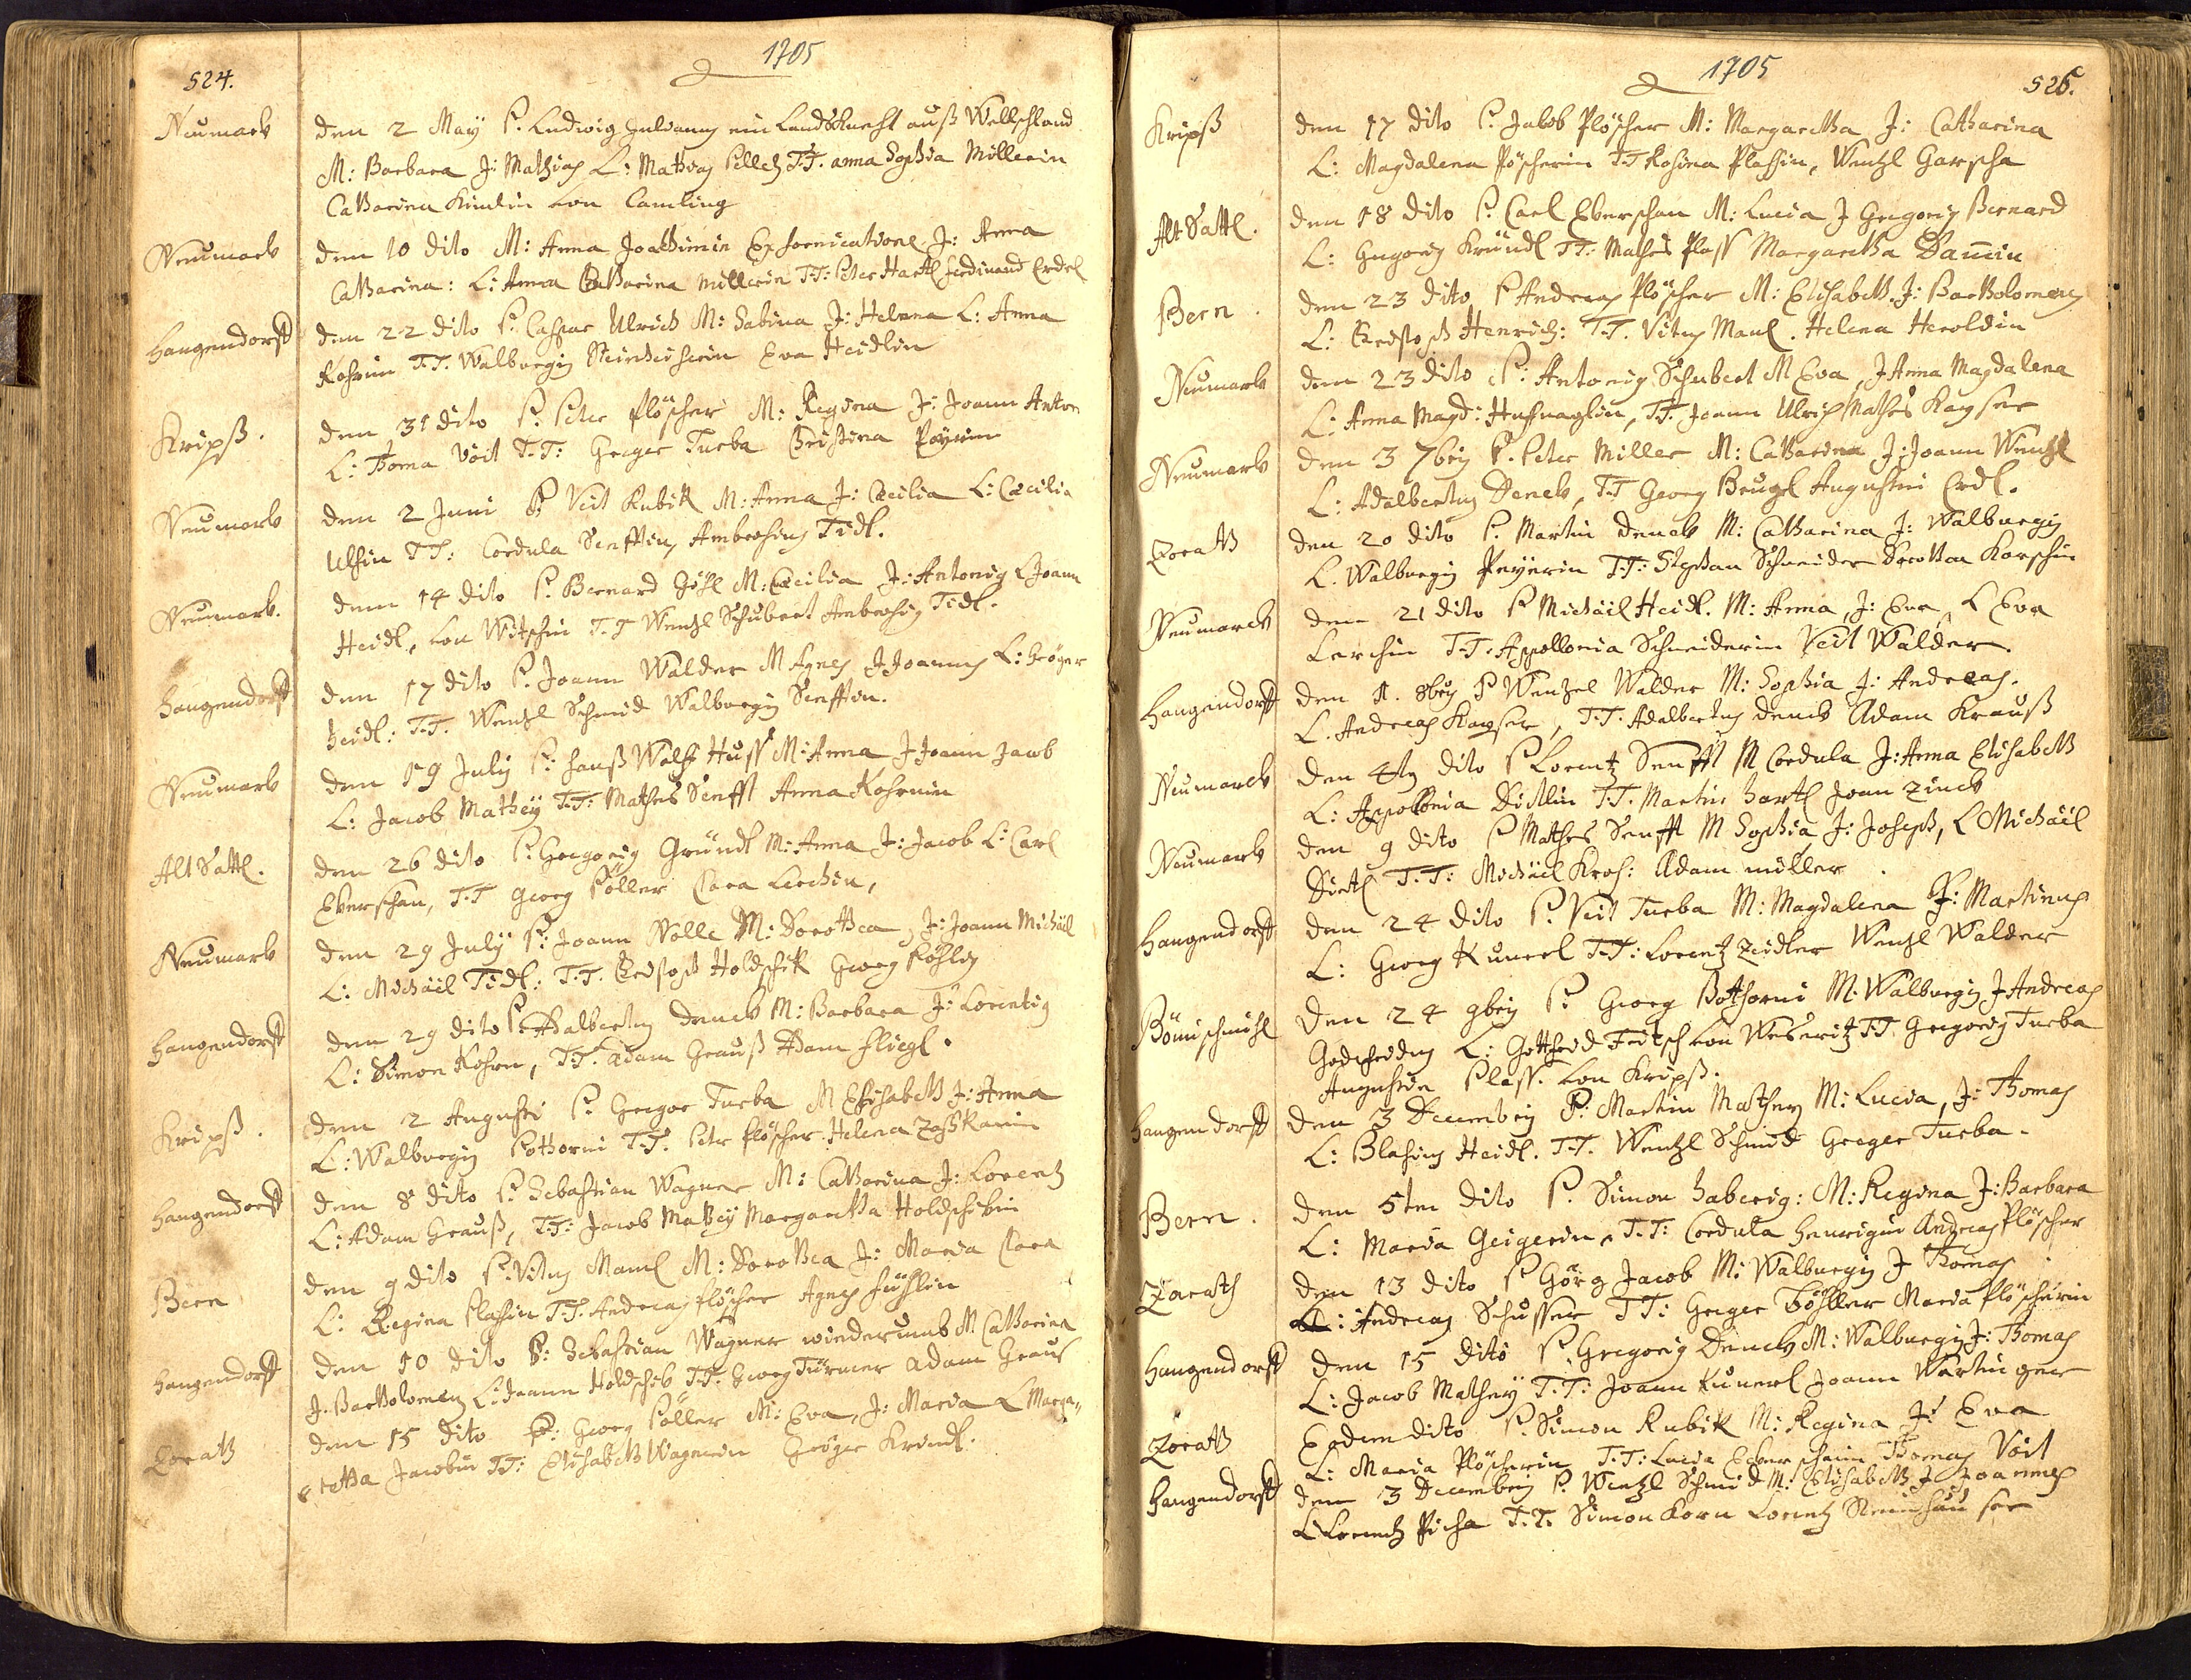 524.
1705
Neumark
den 2 May P. Ludwig ein Landsknecht auß Wellschland
M: Barbara J: Mathias L: Mathias T.T. anna Sophia Millerin
Catharina von Camling
Neumark
den 10 dito M: Anna Joachimin Ex fornicatione J: Anna
Catharina: L: Anna Catharina Millerin T.T: Peter Hartl Ferdinand Erdel
Hangendorff
den 22 dito P. Caspar Ulrich M: Sabina J: Helena L: Anna
T.T. Walburgis Eva Heidlin
Kripß.
den 31 dito P. Peter Plöscher M: Regina J: Joann Anton
L: Thoma Voit T.T: Greger Turba Christina
Neumark
den 2 Juni P. Veit Kubik M: Anna J: Cæcilia L: Cæcilia
T.T: Cordula Senfftin, Ambrosius Tidl.
Neumark.
den 14 dito P. Bernard M: Cæcilia J: Antonig L Joann
Heidl, von T.T Wentzl Schubert Ambrosig Tidl.
Hangendorff
den 17 dito P. Joann Walder M Agnes J Joannes L: Gröger
Heidl: T.T. Wentzl Schmid Walburgis Senfftin.
Neumark
den 19 July P: Hanß Wolff Huff M: Anna J Joann Jacob
L: Jacob Mathey T.T: Mathes Senfft Anna
Alt Sattl.
den 26 dito P. Gregorig Gründl M: Anna J: Jacob L: Carl
Eberschan, T.T Georg Pöller Clara Lerchin,
Neumark
den 29 July P. Joann Nolle M: Dorothea, J: Joann Michäel
L: Michäel Tidl: T.T. Christoph Holdschik Georg
Hangendorff
den 29 dito P. Adalbertus Denck M: Barbara J: Lorentig
L: Simon Kohrn, T.T. Adam Grauß Adam Fliegl.
Kripß.
den 2 Augusti P. Gregor Turba M Elisabeth J: Anna
L: Walburgis Pothorni T.T. Peter Plöscher Helena
Hangendorff
den 8 dito P. Sebastian Wagner M: Catharina J: Lorentz
L: Adam Grauß, T.T: Jacob Mathey Margaretha Holdschikin
Bern
den 9 dito P. Vitus Manl M: Dorothea J: Maria Clara
L: Regina Plassin T.T. Andreas Plöscher Agnes
Hangendorff
den 10 dito P: Sebastian Wagner wiederumb M Catharina
J. Bartholomeus L: Joann Holdschik T.T. Georg Türmer Adam Grauß
Zorath
den 15 dito P: Georg Pöller M: Eva, J: Maria L Marga,,
retha Jacobin T.T: Elisabeth Wagnerin Gröger Kründl.
1705
525.
Kripß
den 17 dito P. Jakob Plöscher M: Margaretha J: Catharina
L: Magdalena Pöscherin T.T Rosina Plassin, Wentzl Garscha
Alt Sattl.
den 18 dito P. Carl Eberschan M: Lucia J Gregorig Bernard
L: Gregorig Kründl T.T: Mathes Plass Margaretha
Bern.
den 23 dito P Andreas Plöscher M: Elisabeth. J: Bartholomeus
L: Christoph Henrich: T.T. Vitus Manl. Helena Heroldin
Neumark
den 23 dito P: Antonig Schubert M Eva, J Anna Magdalena
L: Anna Magd: Hufnaglin, T.T. Joann Ulrich Mathes Kayser
Neumark
den 3 7bris P. Peter Miller M: Catharina J: Joann Wentzl
L: Adalbertus Denck, T.T Georg Augustin Erdl.
Zorath
den 20 dito P. Martin Denck M: Catharina J: Walburgis
L. Walburgis Peyerin T.T: Stephan Schneider Dorothea Korschin
Neumarck
den 21 dito P Michäil Heidl. M: Anna, J: Eva, L Eva
Lerchin T.T: Appollonia Schneiderin Veit Walder.
Hangendorff
den 1. 8bris P Wentzel Walder M: Sophia J: Andreas.
L. Andreas Kayser, T.T. Adalbertus Denck Adam Krauß
Neumarck
den 4ten dito P Lorentz Senfft M Cordula J: Anna Elisabeth
L: Appollonia Dietlin T.T. Martin Hartl Joan Zinck
Neumark
den 9 dito P Mathes Senfft M Sophia J: Joseph, L Michäil
Dietl T.T: Michäil Adam Müller
Hangendorff
den 24 dito P. Veit Turba M: Magdalena J: Martinus
L: Georg Kunerl T.T: Lorentz Zeidler Wentzl Walder
Bömischmühl
den 24 9bris P. Georg Pothorni M: Walburgis J Andreas
L: Gottfried Fritsch von Weseritz T.T. Gregorig Turba
Augustin Plass. von Kripß.
Hangendorff
den 3 Decembris P: Martin Mathey M: Lucia, J: Thomas
L: Blasius Heidl. T.T. Wentzl Schmid Greger Turba.
Bern.
den 5ten dito P. Simon Haberig: M: Regina J: Barbara
L: Maria Geigerin, T.T: Cordula Henrigin Andreas Plöscher
Zorath
den 13 dito P Görg Jacob M: Walburgis J Thomas
L: Andreas Schusser T.T: Greger Maria Plöscherin
Hangendorff
den 15 dito P Gregorig Denck M: Walburgis J: Thomas
L: Jacob Mathey T.T: Joann Kunerl Joann
Zorath
Eodem dito P. Simon Kubik M: Regina J: Eva
L: Maria Plöscherin T.T: Lucia Eberschanin Thomas Voit
Hangendorff
den 3 Decembris P. Wentzl Schmid M. Elisabeth J Joannes
L Lorentz Picha T.T. Simon Korn Lorentz Steinhauser